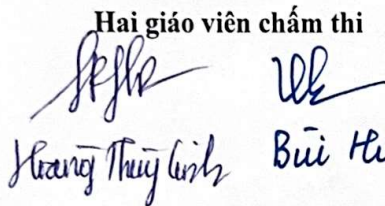 Hai giáo viên chấm thi
Hoàng Thùy Linh Bùi Hu